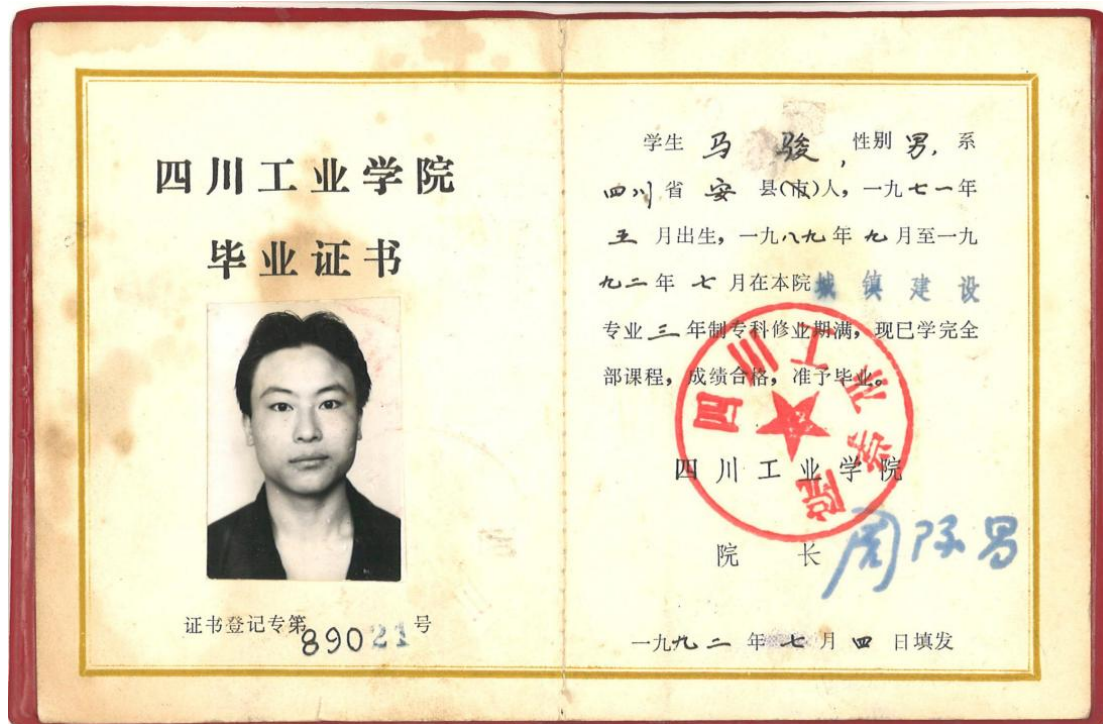 四川工业学院
毕业证书
证书登记专第89021号
学生 马骏，性别男，系
四川省安县(市)人，一九七一年
五月出生，一九八九年九月至一九
九二年七月在本院城镇建设
专业三年制专科修业期满，现已学完全
部课程，成绩合格，准予毕业。
四川工业学院
四川工业学院
院长
一九九二年七月四日填发